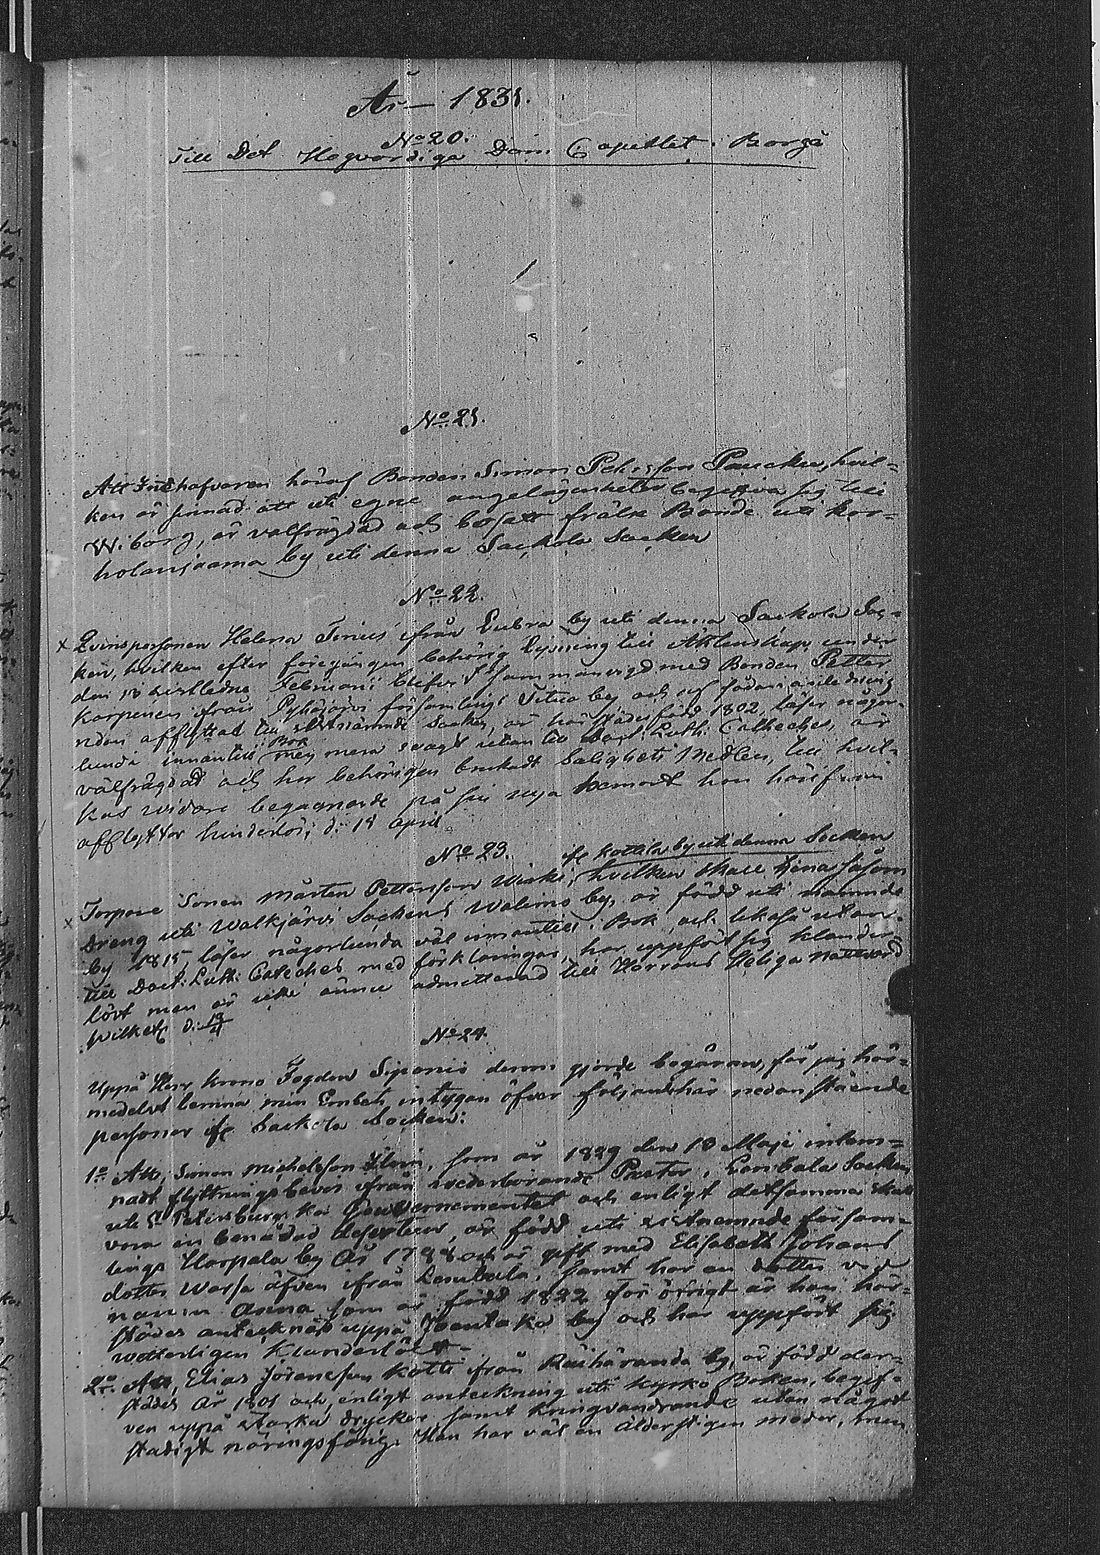 År 1831.
No 20.
Till Det Högvördiga Dom Capitlet i Borgå
No 21.
Att Innehafvaren häraf Bonden Simon Pehrsson Paucku, hvil-
ken är sinnad att uti egne angelägenheter begifva sig till
Wiborg, är välfrägdad och besatt frälse Bonde uti Kor-
holanjaama by uti denna Sackola Socken
No 22.
x Qvinspersonen Helena ifrån by uti denna Sackola Soc-
ken, hvilken efter föregången behörig Lysning till Äktenskap, under
den 18 sistledne Februarii blifvit sammanvigd med Bonden Petter
Karpainen från Pyhäjärvi församling by och
afflyttad till Socken, är härstädes född 1802, läser någor-
lunda innantill Bok men mera svagt utan till Doct: Luth: Catheches, är
välfrägdad och har behörigen brukadt Salighets Medlen, till hvil-
kas vidare begagnande på sin nya hemort hon härifrån
afflyttar hinderlös; d: 18 April
No 23. ifr Kottila by uti denna Socken
x Torpare Sonen Mårten Pettersson, hvilken skall tjena såsom
Dreng uti Walkjärvi Sockens by, är född uti nämnde
by 1815 läser någorlunda väl innantill Bok, och likaså utan-
till Doct: Luth: Catechés med förklaringar, har uppfört sig klander-
löst men är icke ännu admitterad till Herrans Heliga Nattvard
d: 18/4
No 24.
Uppå Herr Krono Fogden Siponii derom gjorde begäran, får jag här-
medelst lemna min Embets intygan öfver följande här nedan stående
personer ifr Sackola Socken:
1o Att, Simon Michelsson, som år 1829 den 18 Maji inlem-
nadt flyttningsbevis ifrån vederbörande Pastor i Lembala Socken
uti St Petersburgska Gouvernementet och enligt detsamma skall
vara en benådad deserteur, är född uti sistnemnde försam-
lings Harpala by År 1788 och är gift med Elisabeth Johans
dotter äfven ifrån Lembala, samt har en dotter vid
namn Anna som är född 1822 För öfrigt är han här-
städes antecknad uppå by och har uppfört sig
vitterligen klanderlöst
2o Att, Elias Jöransson Kotti från Räihäranda by, är född der-
städes År 1801 och enligt anteckning uti Kyrko Boken, begif-
ven uppå starka drycker, samt kringvandrande utan något
stadigt näringsfång. Han har väl en ålderstigen moder, men